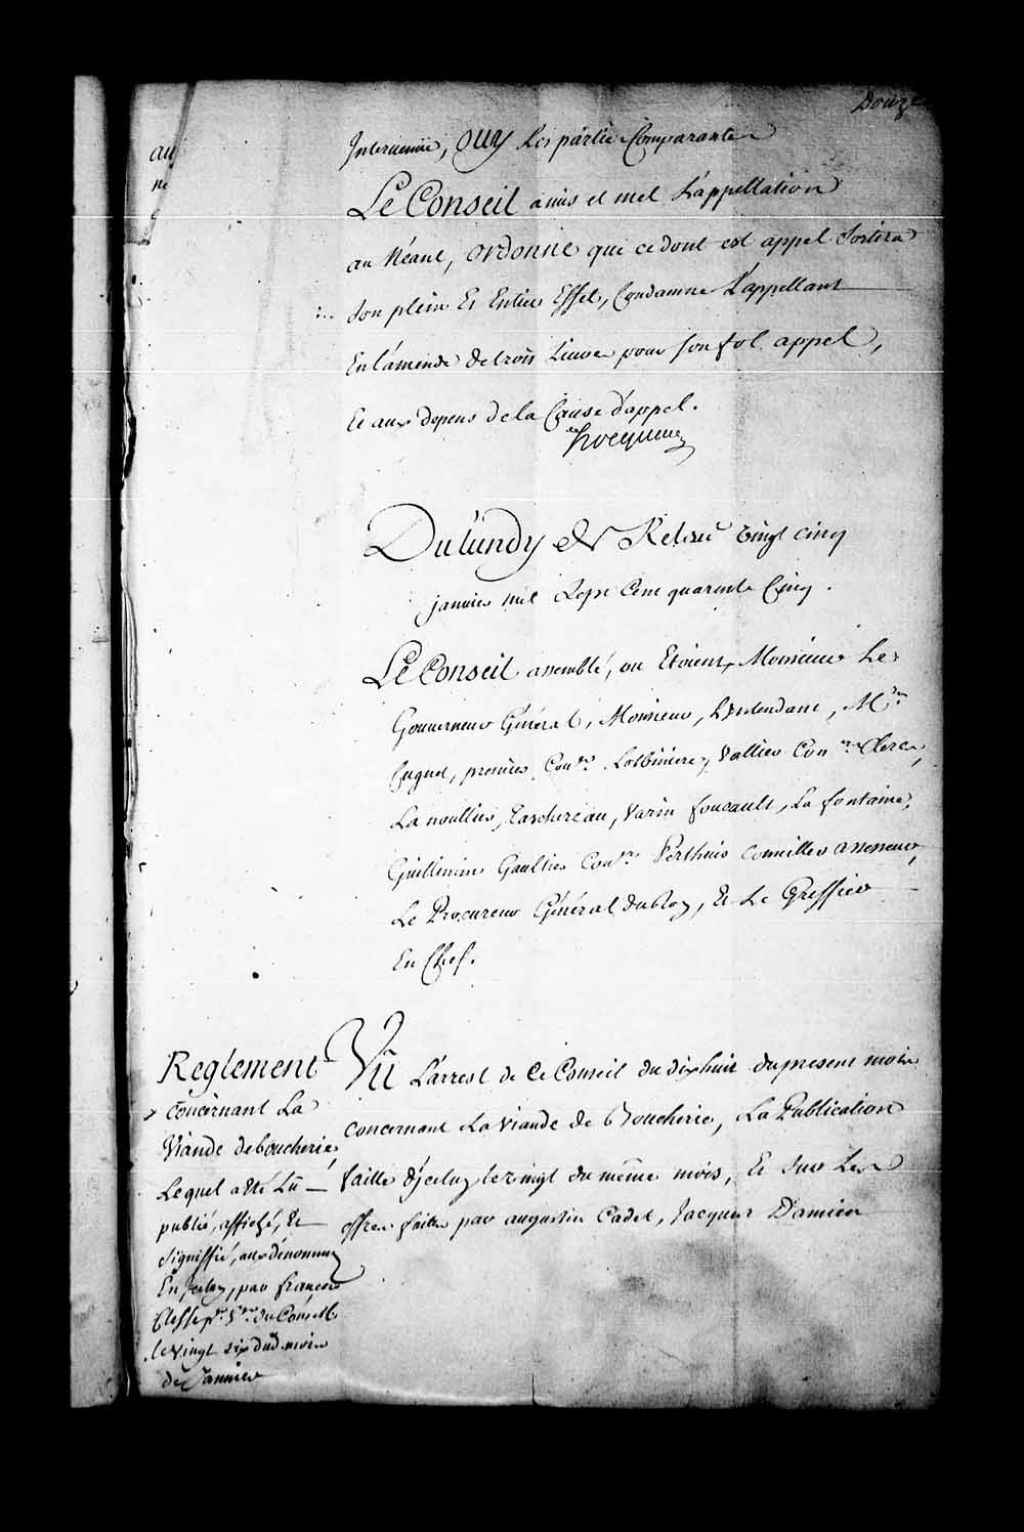 Douze
Intervenüe, OUY Les partie Comparante
Le Conseil a mis et met L'appellation
au Néant, ordonne que ce dont est appel Sortira
Son plein Et Entier Effet, Condamne L'appellant
En L'amende de trois Livres pour Son fol appel,
Et aux depens de la Cause d'appel.
hocquart
Du Lundy de Relevé vingt cinq
janvier mil Sept Cent quarente Cinq.
Le Conseil assemblé, ou Etoient, Monsieur Le
Gouverneur Général, Monsieur, L'Intendant, Mrs
Cugnet, premier Conser Lotbiniere, Vallier Coners Clercs,
La noullier, Taschereau, Varin foucault, La fontaine,
Guillimin Gaultier Coners Perthuis Conseiller assesseur,
Le Procureur Général du Roy, Et Le Greffier
En Chef.
Reglement
concernant La
Viande de boucherie,
Lequel a été Lû
publié, affiché, Et
Signiffié, aux dénommez
En Jceluy, par françois
Clesse pr hr du Conseil
le vingt six dud. mois
de Janvier
Vû L'arrest de Ce Conseil du dix huit du present mois
concernant La viande de Boucherie, La Publication
faitte d'jceluy le vingt du même mois, Et Sur Les
offres faites par augustin Cadet, Jacques Damien
au